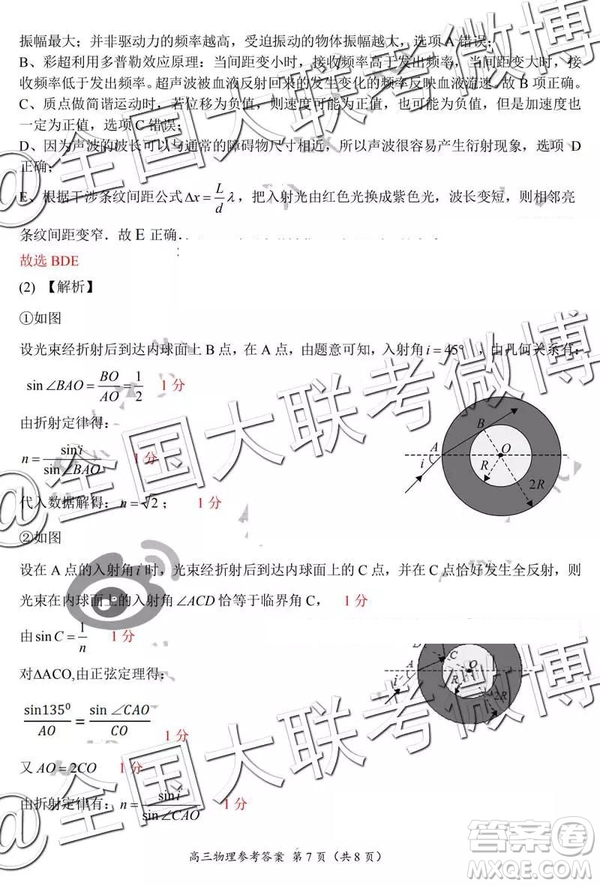 振幅最大；并非驱动力的频率越高，受迫振动的物体振幅越大，选项 A 错误；
B、彩超利用多普勒效应原理：当间距变小时，接收频率高于发出频率，当间距变大时，接
收频率低于发出频率。超声波被血液反射回来的发生变化的频率反映血液流速。故 B 项正确。
C、质点做简谐运动时，若位移为负值，则速度可能为正值，也可能为负值，但加速度也
一定为正值，选项 C 错误；
D、因为声波的长可以与通常的障碍物尺寸相近，所以声波很容易产生衍射现象，选项 D
正确；
E、根据干涉条纹间距公式 Δx = L/d λ，把入射光由红色光换成紫色光，波长变短，则相邻亮
条纹间距变窄．故 E 正确．
故选 BDE
(2) 【解析】
①如图
设光束经折射后到达内球面上 B 点，在 A 点，由题意可知，入射角 i = 45°，由几何关系有：
sin∠BAO = BO/AO = 1/2 1 分
由折射定律得：
n = sin i / sin∠BAO 1 分
代入数据解得：n = √2； 1 分
A
i
O
R
2R
②如图
设在 A 点的入射角 i 时，光束经折射后到达内球面上的 C 点，并在 C 点恰好发生全反射，则
光束在内球面上的入射角 ∠ACD 恰等于临界角 C， 1 分
由 sin C = 1/n 1 分
对ΔACO,由正弦定理得：
sin135⁰/AO = sin ∠CAO/CO 1 分
又 AO = 2CO 1 分
由折射定律有：n = sin i / sin∠CAO 1 分
A
C
O
R
2R
高三物理参考答案 第 7 页（共 8 页）
@全国大联考微博
@全国大联考微博
@全国大联考微博
作业答案圈